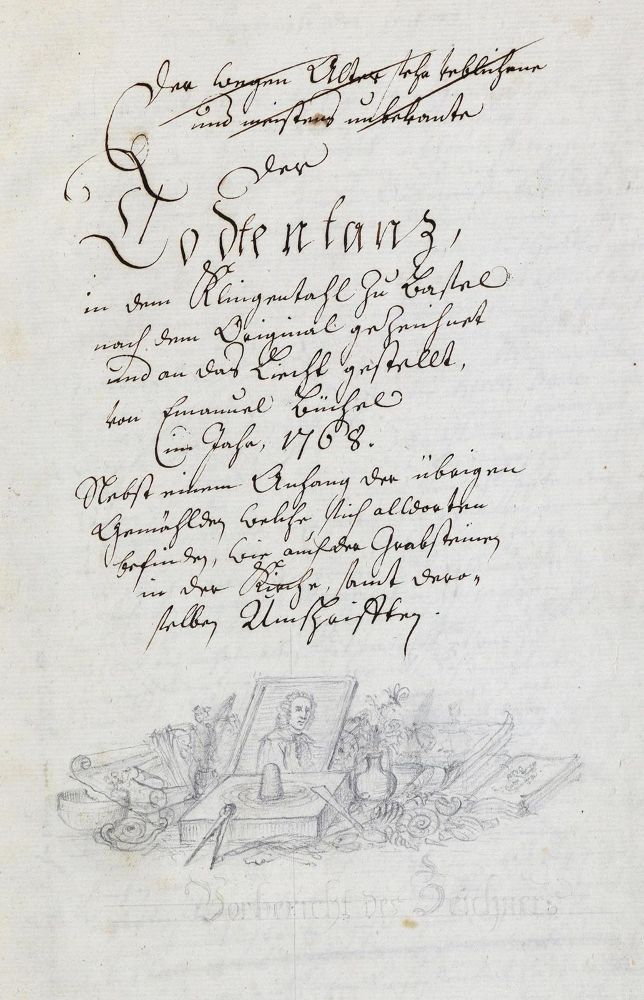 Der wegen Alter sehr verblichene
und meistens unbekante
Der
Todtentanz,
in dem Klingentahl zu Basel
nach dem Original gezeichnet
und an das Liecht gestellt,
von Emanuel Büchel
im Jahr, 1768.
Nebst einem Anhang der übrigen
Gemählden welche sich alldorten
befinden, wie auch der Grabsteinen
in der Kirche, samt dero-
selben Umschrifften.
Vorbericht des Zeichners